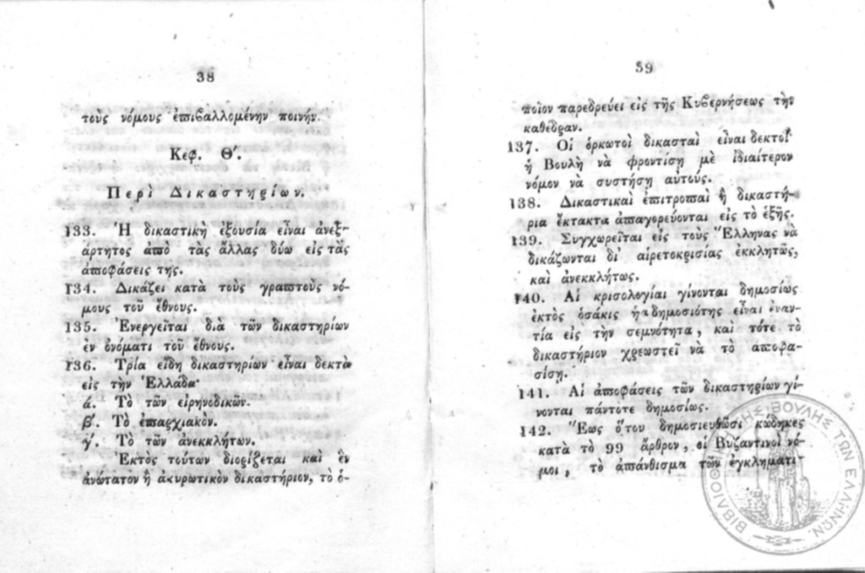 38
τοὺς νόμους ἐπιβαλλομένην ποινήν.
Κεφ. Θʹ.
Περὶ Δικαστηρίων.
133. Ἡ δικαστικὴ ἐξουσία εἶναι ἀνεξ-
άρτητος ἀπὸ τὰς ἄλλας δύω εἰς τὰς
ἀποφάσεις της.
134. Δικάζει κατὰ τοὺς γραπτοὺς νό-
μους τοῦ ἔθνους.
135. Ἐνεργεῖται διὰ τῶν δικαστηρίων
ἐν ὀνόματι τοῦ ἔθνους.
136. Τρία εἴδη δικαστηρίων εἶναι δεκτὰ
εἰς τὴν Ἑλλάδα·
ά. Τὸ τῶν εἰρηνοδικῶν.
βʹ. Τὸ ἐπαρχιακὸν.
γʹ. Τὸ τῶν ἀνεκκλήτων.
Ἐκτὸς τούτων διορίζεται καὶ ἓν
ἀνώτατον ἢ ἀκυρωτικὸν δικαστήριον, τὸ ὁ-
39
ποῖον παρεδρεύει εἰς τῆς Κυβερνήσεως τὴν
καθέδραν.
137. Οἱ ὁρκωτοὶ δικασταὶ εἶναι δεκτοί·
ἡ Βουλὴ νὰ φροντίσῃ μὲ ἰδιαίτερον
νόμον νὰ συστήσῃ αὐτούς.
138. Δικαστικαὶ ἐπιτροπαὶ ἢ δικαστή-
ρια ἔκτακτα ἀπαγορεύονται εἰς τὸ ἑξῆς.
139. Συγχωρεῖται εἰς τοὺς Ἕλληνας νὰ
δικάζωνται δι' αἱρετοκρισίας ἐκκλήτως,
καὶ ἀνεκκλήτως.
140. Αἱ κρισολογίαι γίνονται δημοσίως
ἐκτὸς ὁσάκις ἡ δημοσιότης εἶναι ἐναν-
τία εἰς τὴν σεμνότητα, καὶ τότε τὸ
δικαστήριον χρεωστεῖ νὰ τὸ ἀποφα-
σίσῃ.
141. Αἱ ἀποφάσεις τῶν δικαστηρίων γί-
νονται πάντοτε δημοσίως.
142. Ἕως ὅτου δημοσιευθῶσι κώδηκες
κατὰ τὸ 99 ἄρθρον, οἱ Βυζαντινοὶ νό-
μοι, τὸ ἀπάνθισμα τῶν ἐγκληματι-
ΒΙΒΛΙΟΘΗΚΗ ΤΗΣ ΒΟΥΛΗΣ ΤΩΝ ΕΛΛΗΝΩΝ